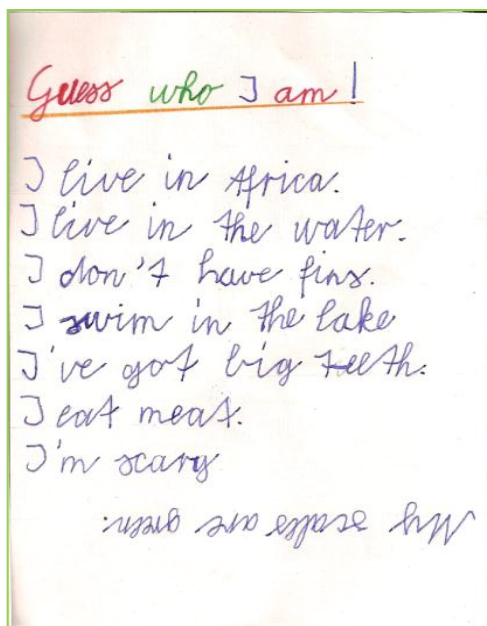 Guess who I am!
I live in Africa.
I live in the water.
I don't have fins.
I swim in the lake
I've got big teeth.
I eat meat.
I'm scary
My scales are green.